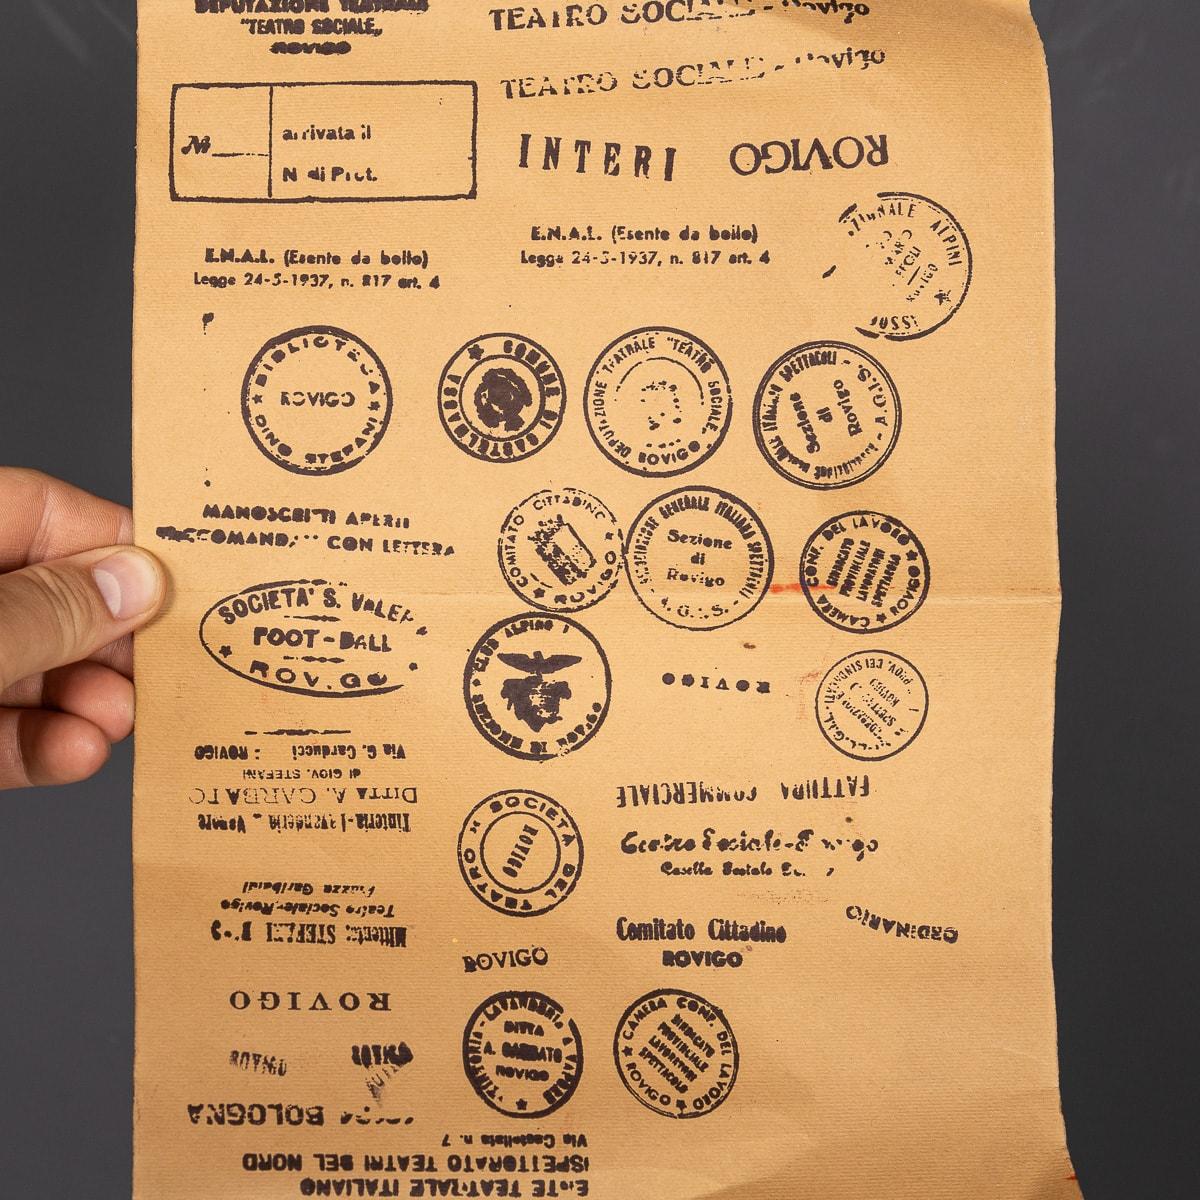 DEPUTAZIONE TEATRALE
"TEATRO SOCIALE,,
ROVIGO
TEATRO SOCIALE - Rovigo
TEATRO SOCIALE - Rovigo
N ___ arrivata il
N di Prot.
INTERI
ROVIGO
E.N.A.L. (Esente da bollo)
Legge 24-5-1937, n. 817 art. 4
E.N.A.L. (Esente da bollo)
Legge 24-5-1937, n. 817 art. 4
ALPINI
BIBLIOTECA
ROVIGO
STEFANI
COMUNE DI
DEPUTAZIONE TEATRALE "TEATRO SOCIALE,
ROVIGO
SPETTACOLI - A.G.I.S.
Sezione
di
Rovigo
MANOSCRITTI APERTI
CON LETTERA
COMITATO CITTADINO
ROVIGO
ASSOCIAZIONE GENERALE ITALIANA SPETTACOLI
Sezione
di
Rovigo
A.G.I.S.
CAMERA CONF. DEL LAVORO
SINDACATO
PROVINCIALE
LAVORATORI
SPETTACOLO
ROVIGO
SOCIETA' S. VALER
FOOT-BALL
ROVIGO
CLUB ALPINO
ROVIGO
PROV. DEI SINDACATI
ROVIGO
Via G. Carducci : ROVIGO
di GIOV. STEFANI
DITTA A. GARBATO
Tintoria-Lavanderia a Vapore
SOCIETÀ DEL TEATRO
ROVIGO
FATTURA COMMERCIALE
Teatro Sociale-Rovigo
Casella Postale
Piazza Garibaldi
Teatro Sociale-Rovigo
Mittente: STEFANI
Comitato Cittadino
ROVIGO
ORDINARIO
ROVIGO
ROVIGO
TINTORIA - LAVANDERIA A VAPORE
DITTA
A. GARBATO
ROVIGO
CAMERA CONF. DEL LAVORO
SINDACATO
PROVINCIALE
LAVORATORI
SPETTACOLO
ROVIGO
ROVIGO
BOLOGNA
Via Castellata n. 7
ISPETTORATO TEATRI DEL NORD
ENTE TEATRALE ITALIANO